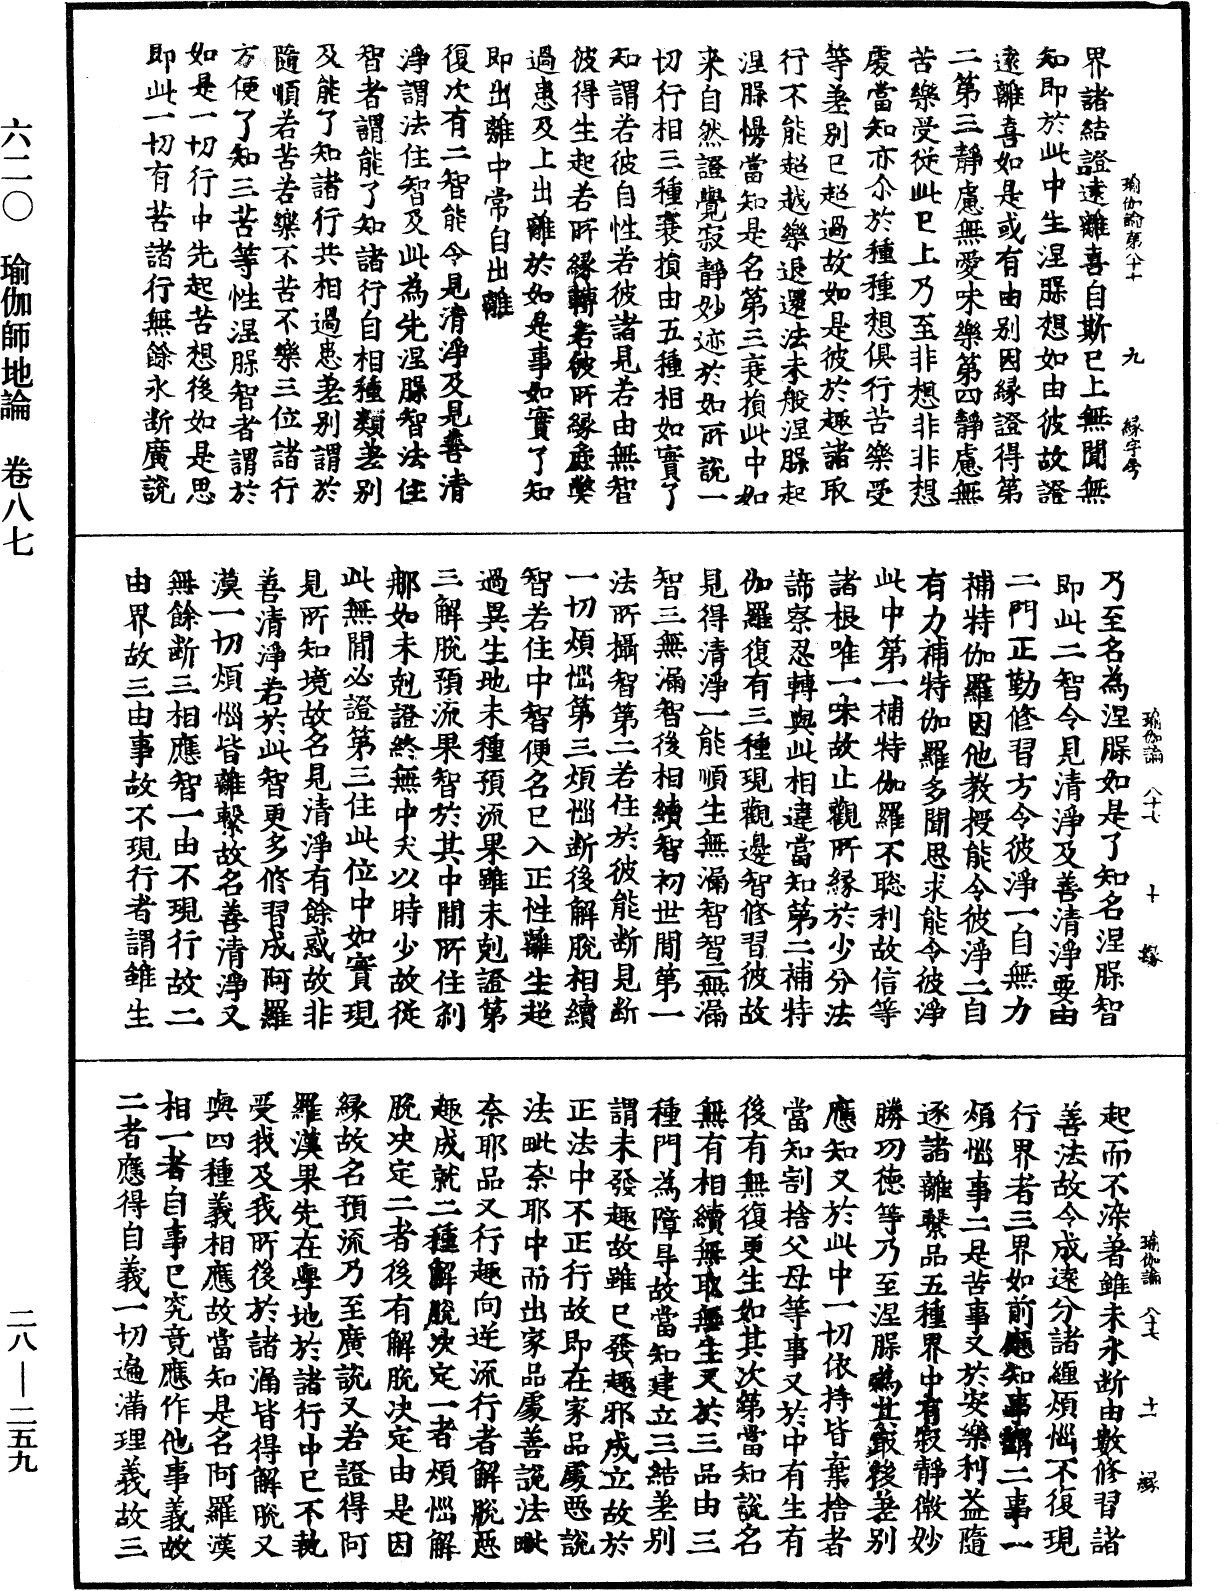 六二〇　瑜伽師地論　卷八七
二八—二五九
瑜伽論第八十　九　緣字号
界諸結證遠離喜自斯已上無聞無
知即於此中生涅槃想如由彼故證
遠離喜如是或有由別因緣證得第
二第三靜慮無愛味樂第四靜慮無
苦樂受從此已上乃至非想非非想
處當知亦尒於種種想俱行苦樂受
等差別已超過故如是彼於趣諸取
行不能超越樂退還法未般涅槃起
涅槃慢當知是名第三衰損此中如
来自然證覺寂靜妙迹於如所說一
切行相三種衰損由五種相如實了
知謂若彼自性若彼諸見若由無智
彼得生起若所緣轉若彼所緣虛弊
過患及上出離於如是事如實了知
即出離中常自出離
復次有二智能令見清淨及見善清
淨謂法住智及此為先涅槃智法住
智者謂能了知諸行自相種類差別
及能了知諸行共相過患差別謂於
隨順若苦若樂不苦不樂三位諸行
方便了知三苦等性涅槃智者謂於
如是一切行中先起苦想後如是思
即此一切有苦諸行無餘永斷廣說
瑜伽論　八十七　十　緣
乃至名為涅槃如是了知名涅槃智
即此二智令見清淨及善清淨要由
二門正勤修習方令彼淨一自無力
補特伽羅因他教授能令彼淨二自
有力補特伽羅多聞思求能令彼淨
此中第一補特伽羅不聡利故信等
諸根唯一味故止觀所緣於少分法
諦察忍轉與此相違當知第二補特
伽羅復有三種現觀邊智修習彼故
見得清淨一能順生無漏智智二無漏
智三無漏智後相續智初世間第一
法所攝智第二若住於彼能斷見斷
一切煩惱第三煩惱斷後解脫相續
智若住中智便名已入正性離生超
過異生地未種預流果雖未剋證第
三解脫預流果智於其中間所住剎
那如未剋證終無中夭以時少故從
此無間必證第三住此位中如實現
見所知境故名見清淨有餘惑故非
善清淨若於此智更多修習成阿羅
漢一切煩惱皆離繫故名善清淨又
無餘斷三相應智一由不現行故二
由界故三由事故不現行者謂雖生
瑜伽論　八十七　十一　緣
起而不染著雖未永斷由數修習諸
善法故令成遠分諸纏煩惱不復現
行界者三界如前應知事謂二事一
煩惱事二是苦事又於安樂利益隨
逐諸離繫品五種界中有寂靜微妙
勝功德等乃至涅槃為其最後差別
應知又於此中一切依持皆棄捨者
當知割捨父母等事又於中有生有
後有無復更生如其次第當知說名
無有相續無取無生又於三品由三
種門為障㝵故當知建立三結差別
謂未發趣故雖已發趣邪成立故於
正法中不正行故即在家品處惡說
法毗奈耶中而出家品處善說法毗
奈耶品又行趣向逆流行者解脫惡
趣成就二種解脫決定一者煩惱解
脫決定二者後有解脫決定由是因
緣故名預流乃至廣說又若證得阿
羅漢果先在學地於諸行中已不執
受我及我所後於諸漏皆得解脫又
與四種義相應故當知是名阿羅漢
相一者自事已究竟應作他事義故
二者應得自義一切遍滿理義故三